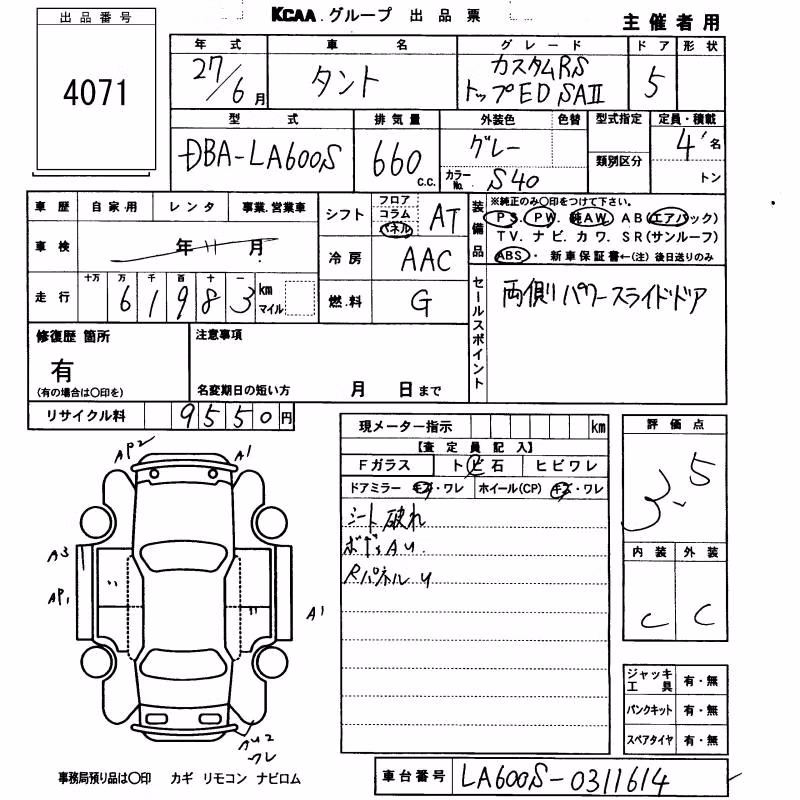 KCAA グループ 出品票
主催者用
出品番号
4071
年式 車名 グレード ドア 形状
27/6月 タント カスタムRS トップED SAⅡ 5
型式 排気量 外装色 色替 型式指定 定員・積載
DBA-LA600S 660 C.C. グレー 類別区分 4名
カラーNo. S40 トン
車歴 自家用 レンタ 事業.営業車
車検 年 11 月
走行 十万 万 千 百 十 一 km マイル
6 1 9 8 3
シフト フロア コラム パネル AT
冷房 AAC
燃料 G
装備品 ※純正のみ〇印をつけて下さい。
PS. PW. 純AW. AB(エアバック)
TV. ナビ. カワ. SR(サンルーフ)
ABS・新車保証書←(注)後日送りのみ
セールスポイント 両側パワースライドドア
修復歴 箇所 注意事項
有
(有の場合は〇印を) 名変期日の短い方 月 日まで
リサイクル料 9550円
現メーター指示 km
【査定員記入】
Fガラス トビ石 ヒビワレ
ドアミラー キズ・ワレ ホイール(CP) キズ・ワレ
シート破れ
ボディAU.
Rパネル U
評価点
3.5
内装 外装
C C
AP2 A1
A3
AP1 A1
AU2
ワレ
ジャッキ 工具 有・無
パンクキット 有・無
スペアタイヤ 有・無
事務局預り品は〇印 カギ リモコン ナビロム
車台番号 LA600S-0311614